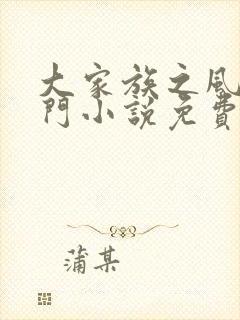 大家族之風
門小說免費
蒲某